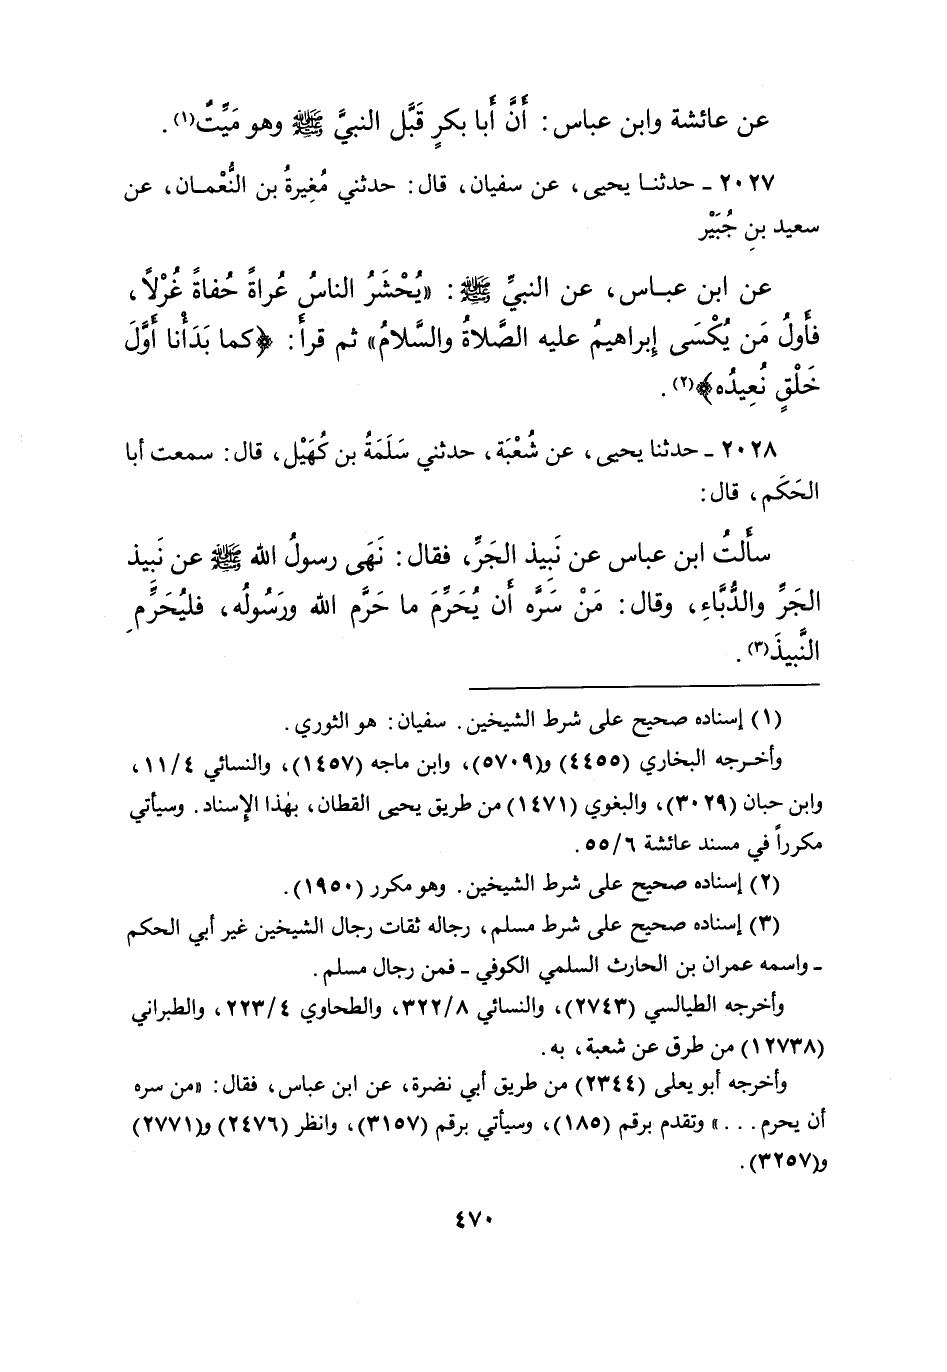 عن عائشة وابن عباس: أَنَّ أَبا بكرٍ قَبَّل النبيَّ ﷺ وهو مَيِّتٌ(١).
٢٠٢٧ ـ حدثنـا يحيى، عن سفيان، قال: حدثني مُغِيرةُ بن النُّعْمـان، عن
سعيد بنِ جُبَيْر
عن ابن عبـاس، عن النبيِّ ﷺ: «يُحْشَرُ الناسُ عُراةً حُفاةً غُرْلاً،
فأَولُ مَن يُكْسَى إِبراهيمُ عليه الصَّلاةُ والسَّلامُ» ثم قرأَ: ﴿كما بَدَأْنا أَوَّلَ
خَلْقٍ نُعِيدُه﴾(٢).
٢٠٢٨ ـ حدثنا يحيى، عن شُعْبَة، حدثني سَلَمَةُ بن كُهَيْل، قال: سمعت أبا
الحَكَم، قال:
سأَلتُ ابن عباس عن نَبِيذ الجَرِّ، فقال: نَهَى رسولُ الله ﷺ عن نَبِيذ
الجَرِّ والدُّبَّاءِ، وقال: مَنْ سَرَّه أَن يُحَرِّمَ ما حَرَّم الله ورَسُولُه، فليُحَرِّمِ
النَّبيذَ(٣).
(١) إسناده صحيح على شرط الشيخين. سفيان: هو الثوري.
وأخـرجه البخاري (٤٤٥٥) و(٥٧٠٩)، وابن ماجه (١٤٥٧)، والنسائي ١١/٤،
وابن حبان (٣٠٢٩)، والبغوي (١٤٧١) من طريق يحيى القطان، بهٰذا الإِسناد. وسيأتي
مكرراً في مسند عائشة ٥٥/٦.
(٢) إسناده صحيح على شرط الشيخين. وهو مكرر (١٩٥٠).
(٣) إسناده صحيح على شرط مسلم، رجاله ثقات رجال الشيخين غير أبي الحكم
ـ واسمه عمران بن الحارث السلمي الكوفي ـ فمن رجال مسلم.
وأخرجه الطيالسي (٢٧٤٣)، والنسائي ٣٢٢/٨، والطحاوي ٢٢٣/٤، والطبراني
(١٢٧٣٨) من طرق عن شعبة، به.
وأخرجه أبو يعلى (٢٣٤٤) من طريق أبي نضرة، عن ابن عباس، فقال: «من سره
أن يحرم...» وتقدم برقم (١٨٥)، وسيأتي برقم (٣١٥٧)، وانظر (٢٤٧٦) و(٢٧٧١)
و(٣٢٥٧).
٤٧٠